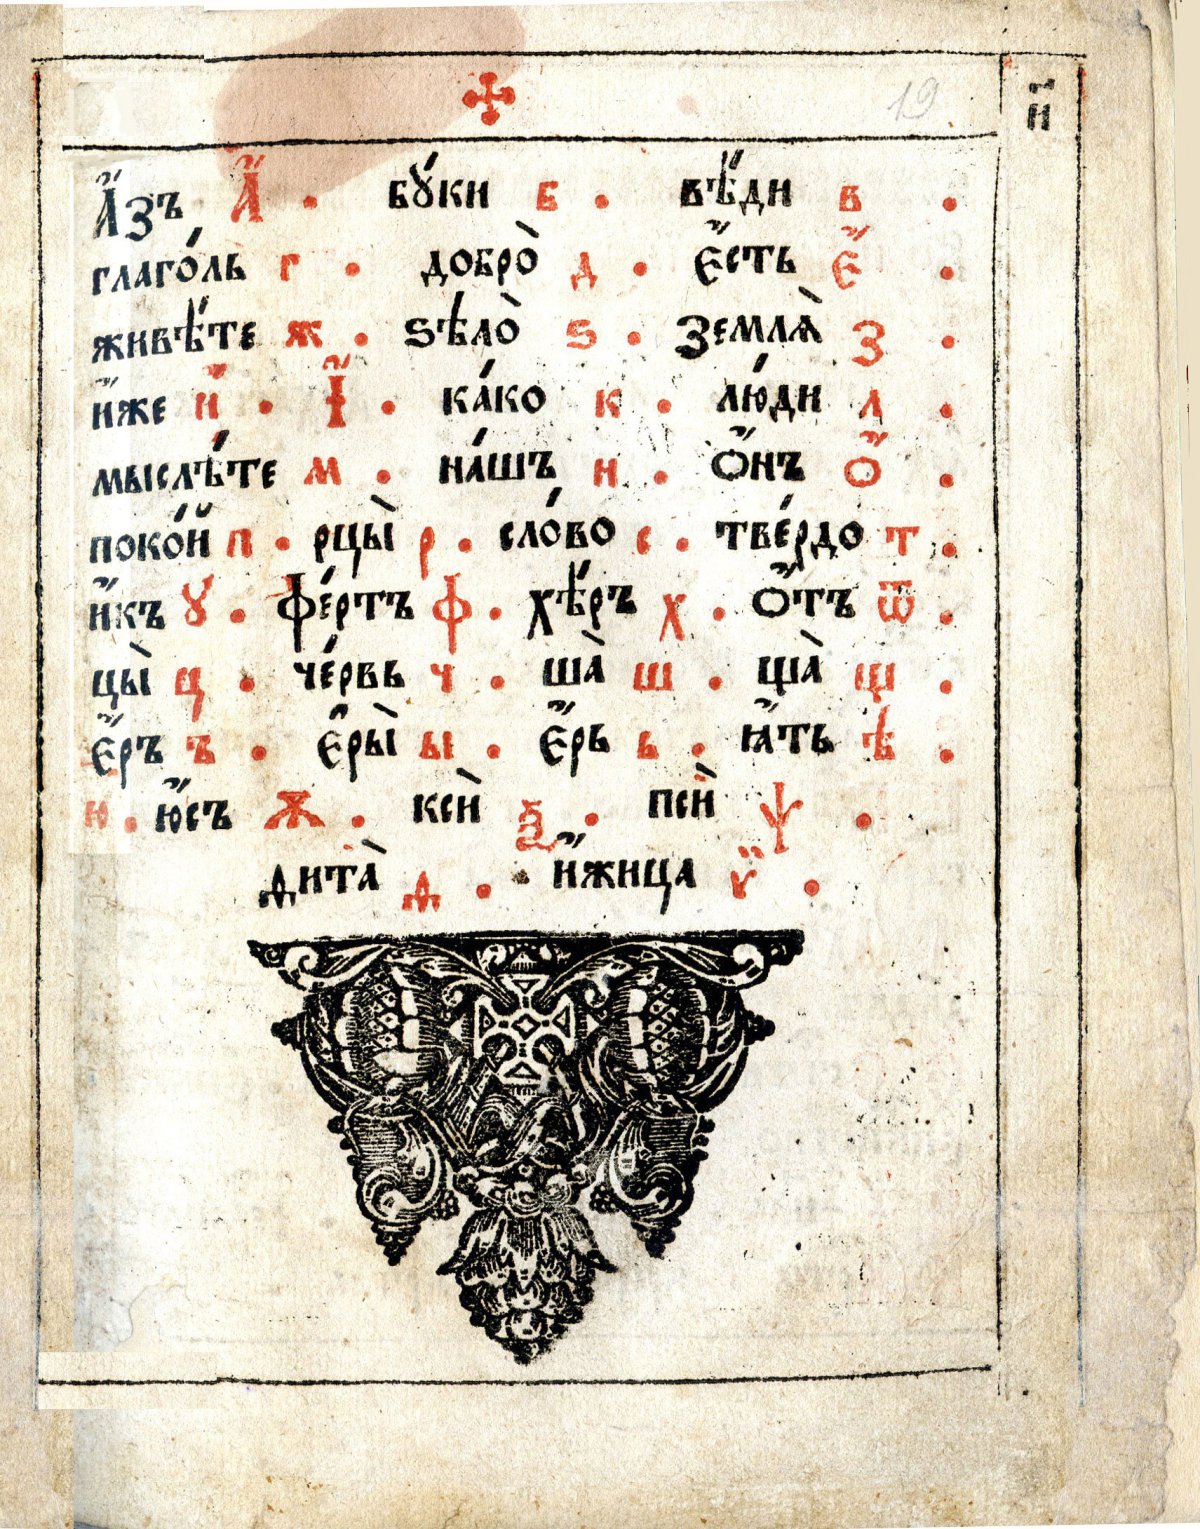 19
и҃і
А҆́зъ А҆́ . бу́ки б . вѣ́ди в .
глаго́ль г . добро̀ д . Е҆́сть Е҆́ .
живѣ́те ж . ѕѣло̀ ѕ . землѧ̀ з .
и҆́же и҆́ . І҆́ . ка́ко к . лю́ди л .
мыслѣ́те м . на́шъ н . Ѻ҆́нъ Ѻ҆́ .
поко́й п . рцы̀ р . сло́во с . тве́рдо т .
и҆́къ ꙋ . фе́ртъ ф . хѣ́ръ х . Ѻ҆́тъ ѿ .
цы̀ ц . че́рвь ч . ша̀ ш . ща̀ щ .
Е҆́ръ ъ . Е҆ры̀ ы . Е҆́рь ь . ꙗ҆́ть ѣ .
ю . ю҆́съ ѫ . ксѝ ѯ . псѝ ѱ .
дита̀ д . и҆́жица ѵ .